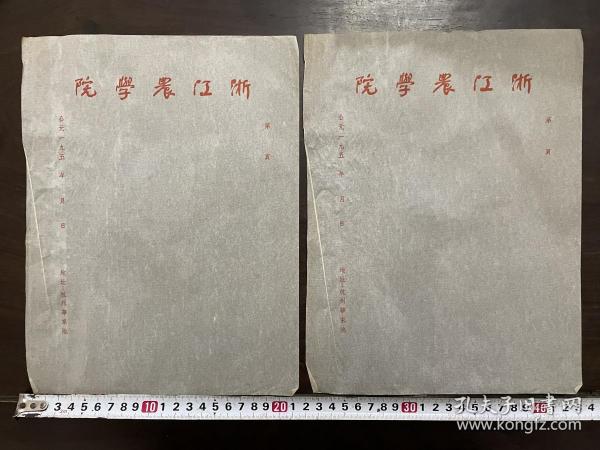 浙江農學院
第 頁
公元一九五 年 月 日
地址:杭州華家池
浙江農學院
第 頁
公元一九五 年 月 日
地址:杭州華家池
3 4 5 6 7 8 9 10 1 2 3 4 5 6 7 8 9 20 1 2 3 4 5 6 7 8 9 30 1 2 3 4 5 6 7 8 9 40 1 2 3 4
孔夫子旧书网
kongfz.com